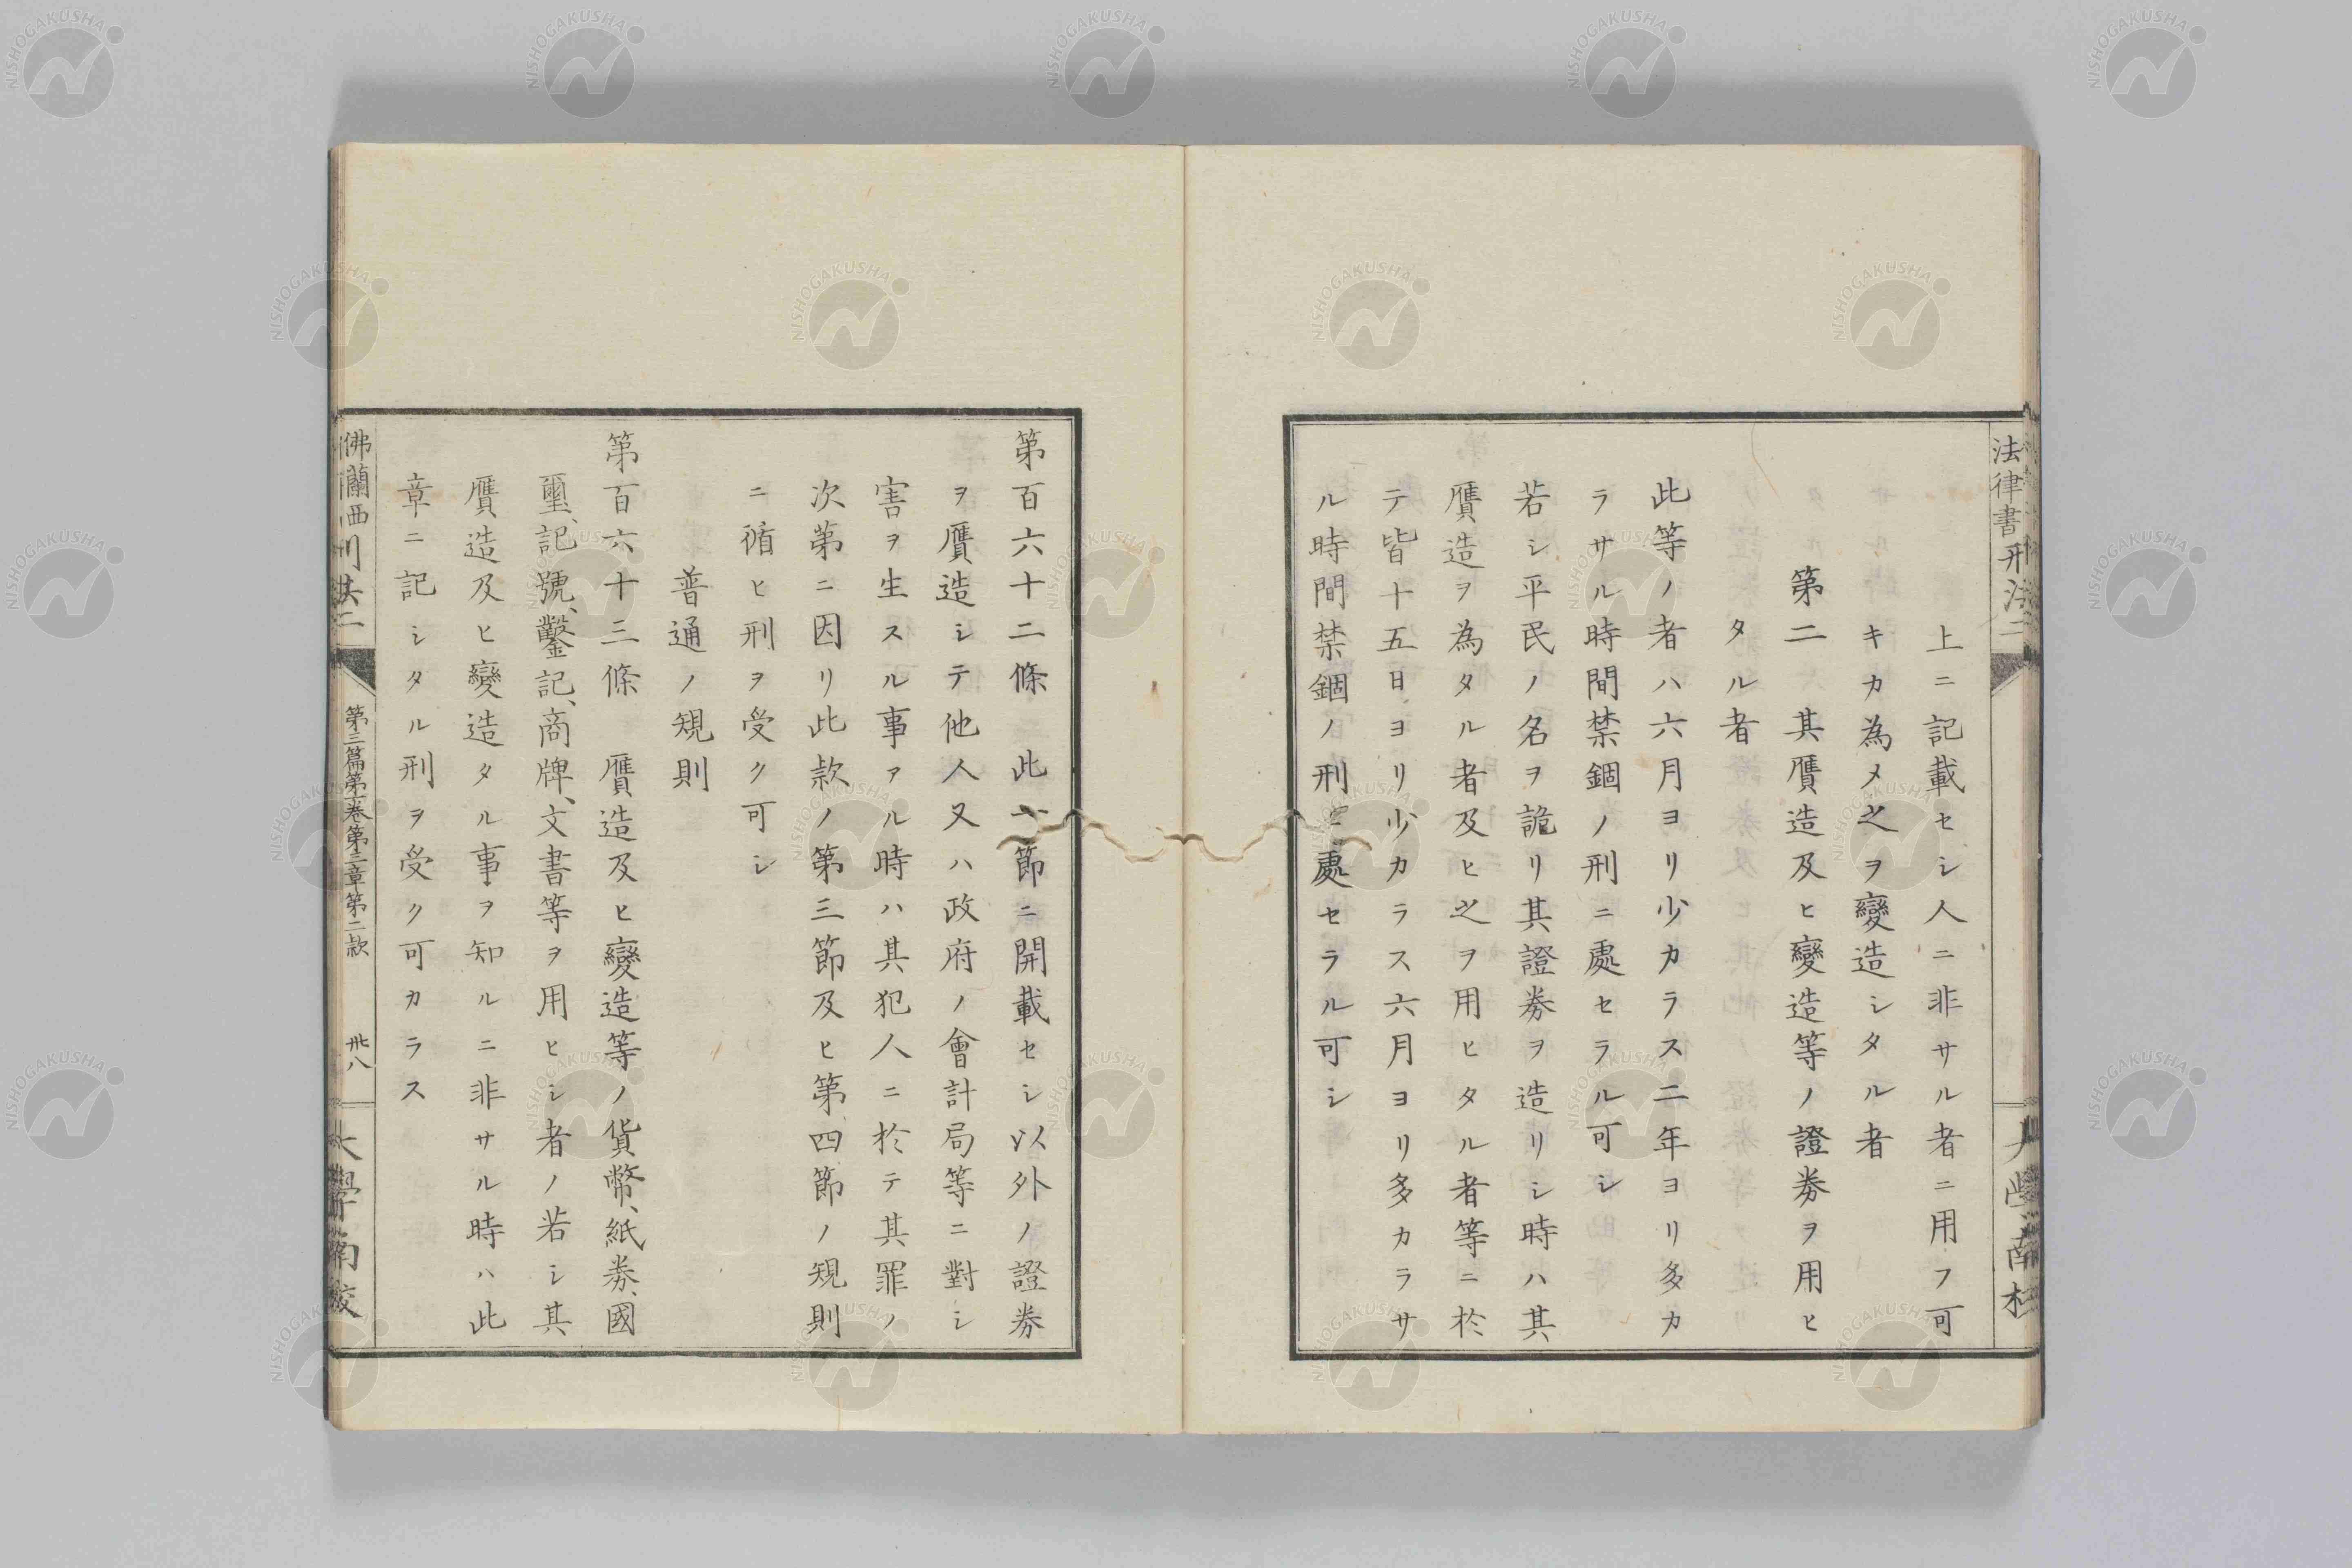 法律書刑法二
上ニ記載セシ人ニ非サル者ニ用フ可
キカ為メ之ヲ變造シタル者
第二 其贋造及ヒ變造等ノ證券ヲ用ヒ
タル者
此等ノ者ハ六月ヨリ少カラス二年ヨリ多カ
ラサル時間禁錮ノ刑ニ處セラル可シ
若シ平民ノ名ヲ詭リ其證券ヲ造リシ時ハ其
贋造ヲ為タル者及ヒ之ヲ用ヒタル者等ニ於
テ皆十五日ヨリ少カラス六月ヨリ多カラサ
ル時間禁錮ノ刑ニ處セラル可シ
第百六十二條 此一節ニ開載セシ以外ノ證券
ヲ贋造シテ他人又ハ政府ノ會計局等ニ對シ
害ヲ生スル事アル時ハ其犯人ニ於テ其罪ノ
次第ニ因リ此款ノ第三節及ヒ第四節ノ規則
ニ循ヒ刑ヲ受ク可シ
普通ノ規則
第百六十三條 贋造及ヒ變造等ノ貨幣、紙券、國
璽、記號、鑿記、商牌、文書等ヲ用ヒシ者ノ若シ其
贋造及ヒ變造タル事ヲ知ルニ非サル時ハ此
章ニ記シタル刑ヲ受ク可カラス
佛蘭西
第三篇第一巻第三章第二款
卅八
大學南校
NISHOGAKUSHA